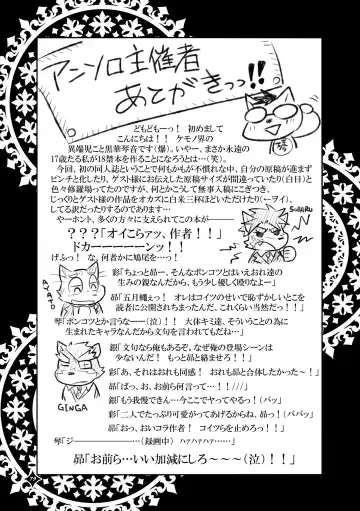 アンソロ主催者
あとがきっ!!
琴
どもどもーっ！ 初めまして
こんにちは！！ ケモノ界の
異端児こと黒華琴音です（爆）。いやー、まさか永遠の
17歳たる私が18禁本を作ることになろうとは…（笑）。
今回、初の同人誌ということで何もかもが不慣れな中、自分の原稿が進まず
ピンチと化したり、ゲスト様にお伝えした原稿サイズが間違っていたり（白目）と
色々修羅場ってたのですが、何とかこうして無事入稿にこぎつき、
じっくりとゲスト様の作品をオカズに白米三杯ほどいただけたり（ーヲイ）、
してる訳だったりするのであります…
やーホント、多くの方々に支えられてこの本が―――
？？？「オイこらァッ、作者！！」
ドカーーーーーンッ！！
SUBARU
げふっ！ な、何者かに鳩尾を…っ！
彩「ちょっと昴ー、そんなポンコツとはいえおれ達の
生みの親なんだから、もう少し優しく殴りなよー」
昴「五月蠅ぇっ！ オレはコイツのせいで恥ずかしいとこを
読者に公開されちまったんだ、これくらい当然だっ！！」
琴「ポンコツとか言うなーー（泣）！！ 大体キミ達、そういうことの為に
生まれたキャラなんだから文句を言われてもね…」
銀「文句なら俺もあるぞ、なぜ俺の登場シーンは
少ないんだ！ もっと昴と絡ませろ！！」
彩「あ、それはおれも同感！ おれも昴と合体したかった～！」
昴「ばっ、お、お前ら何言って…！！///」
GINGA
銀「もう我慢できん…今ここでヤってやるっ！（バッ）
彩「二人でたっぷり可愛がってあげるからね、昴っ！（ババッ）
昴「おっ、おいコラ作者！ コイツらを止めろっ！！」
琴「ジ―――――…（録画中） ハァハァハァ……」
昴「お前ら…いい加減にしろ～～～（泣）！！」